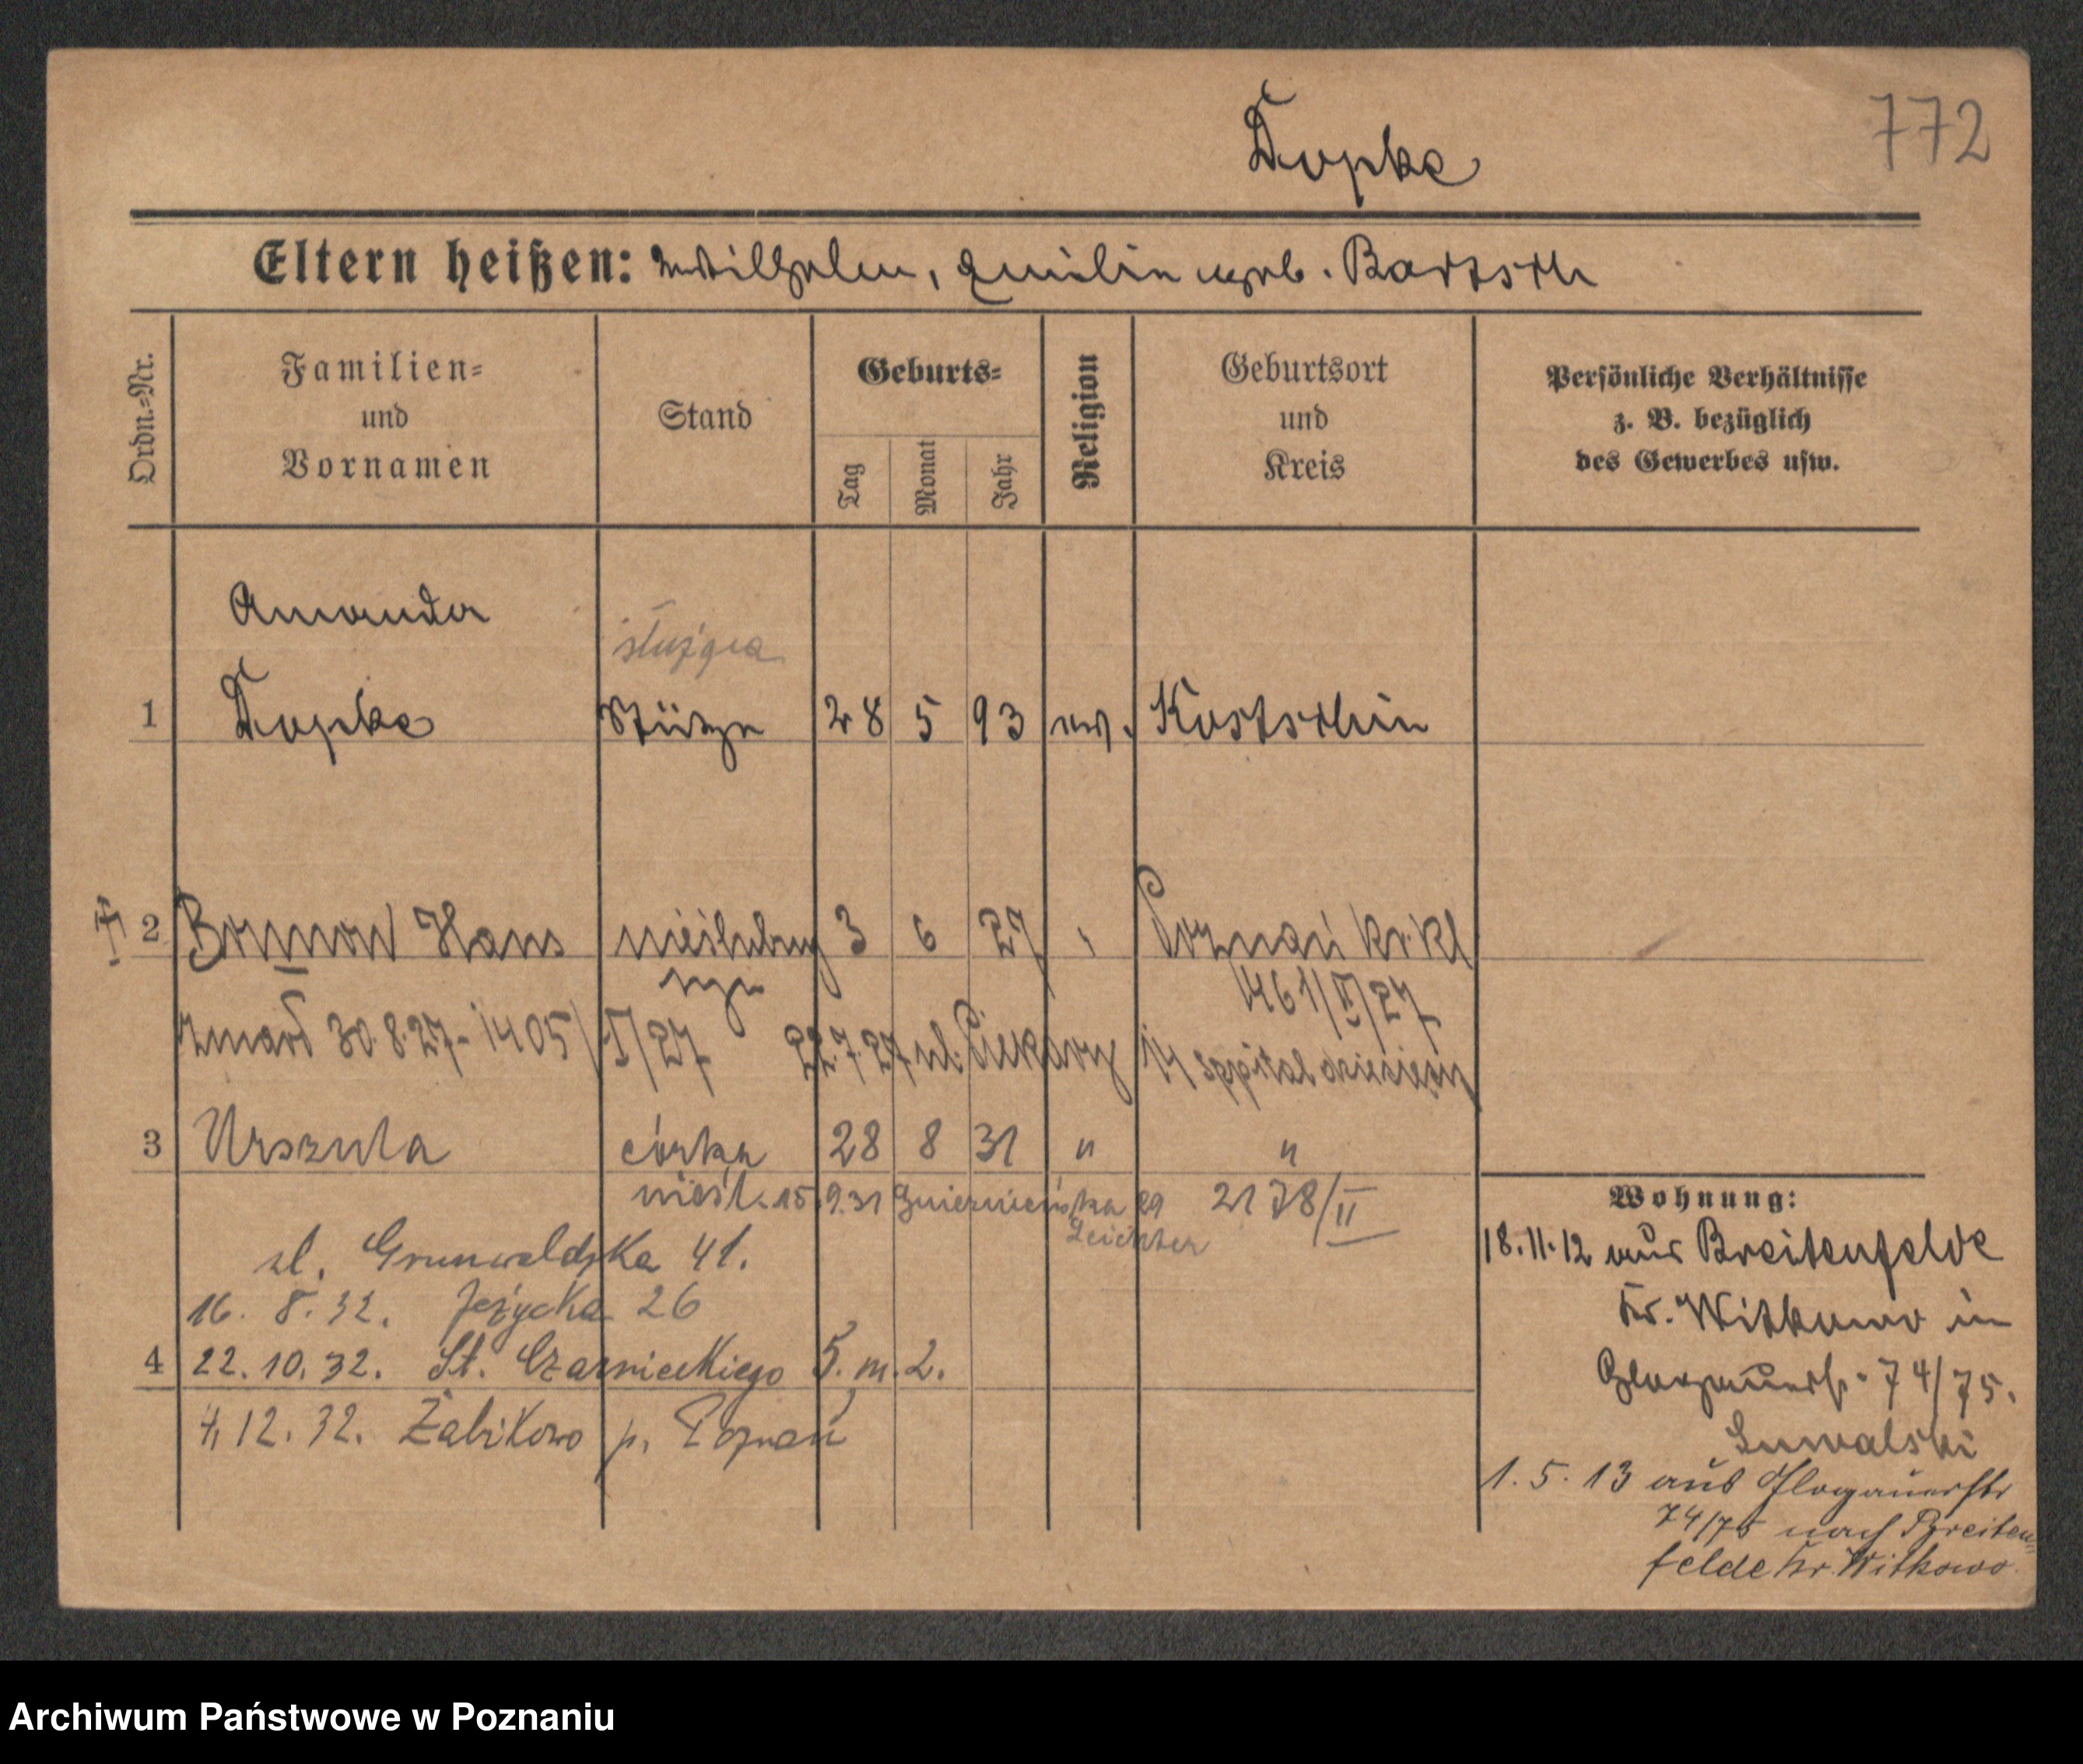 Topka
772
Eltern heißen: Wilhelm, Emilie geb. Bartsch
Ordn.-Nr.
Familien-
und
Vornamen
Stand
Geburts-
Tag
Monat
Jahr
Religion
Geburtsort
und
Kreis
Persönliche Verhältnisse
z. B. bezüglich
des Gewerbes usw.
Amanda
służąca
1 Topka Stütze 28 5 93 ev. Kostschin
2 Hans nieślubny 3 6 27 Poznań
syn 1461/II/27
zmarł 30.8.27 - 1405/I/27 22.7.27 ul. Piekary 14 szpital dziecięcy
3 Urszula córka 28 8 31 " "
nieśl. 15.9.31 Gnieźnieńska 29 2178/II
Leichter
ul. Grunwaldzka 41.
16. 8. 32. Jeżycka 26
4 22. 10. 32. St. Czarnieckiego 5. m. 2.
7. 12. 32. Żabikowo p. Poznań
Wohnung:
18.11.12 aus Breitenfelde
Kr. Witkowo in
Glogauerstr. 74/75.
Suwalski
1. 5. 13 aus Glogauerstr
74/75 nach Breiten-
felde Kr. Witkowo
Archiwum Państwowe w Poznaniu